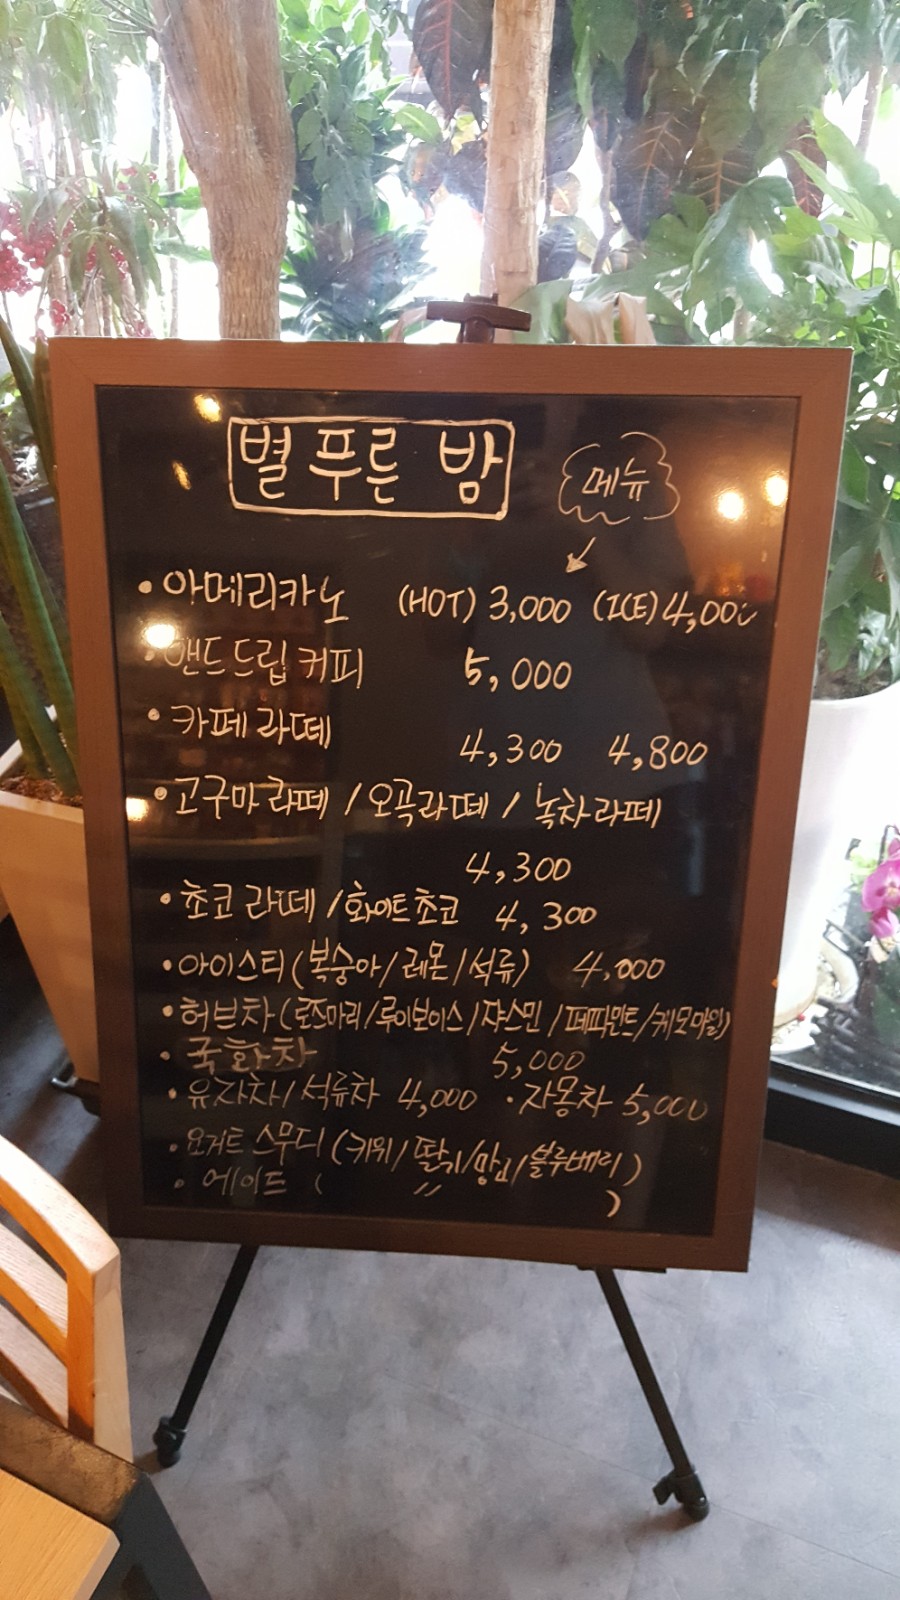 별 푸른 밤
메뉴
• 아메리카노 (HOT) 3,000 (ICE) 4,000
• 핸드드립 커피 5,000
• 카페 라떼 4,300 4,800
• 고구마 라떼 / 오곡라떼 / 녹차라떼
4,300
• 초코 라떼 / 화이트초코 4,300
• 아이스티 (복숭아 / 레몬 / 석류) 4,000
• 허브차 (로즈마리 / 루이보이스 / 쟈스민 / 페퍼민트 / 케모마일)
• 국화차 5,000
• 유자차 / 석류차 4,000 • 자몽차 5,000
• 요거트 스무디 (키위 / 딸기 / 망고 / 블루베리)
• 에이드 ( 〃 )